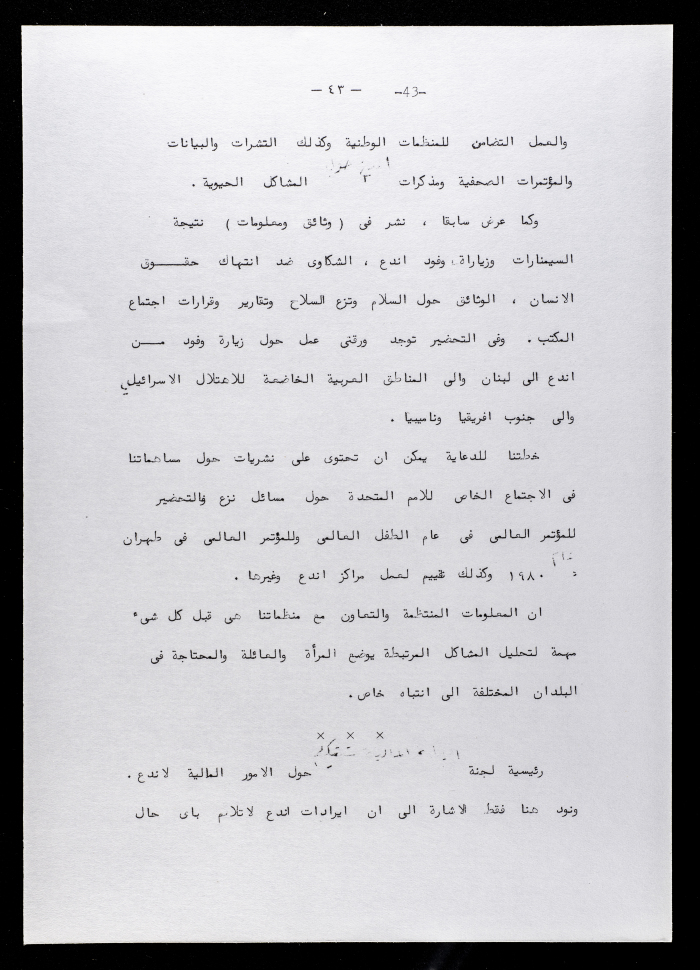 — ٤٣ — -43-
والعمل التضامن للمنظمات الوطنية وكذلك التشرات والبيانات
والمؤتمرات الصحفية ومذكرات المشاكل الحيوية .
وكما عرض سابقا ، نشر فى ( وثائق ومعلومات ) نتيجة
السيمنارات وزياراة وفود اندع ، الشكاوى ضد انتهاك حقـــوق
الانسان ، الوثائق حول السلام ونزع السلاح وتقارير وقرارات اجتماع
المكتب . وفى التحضير توجد ورقتى عمل حول زيارة وفود مـــن
اندع الى لبنان والى المناطق العربية الخاضعة للاهتلال الاسرائيلي
والى جنوب افريقيا وناميبيا .
خطتنا للدعاية يمكن ان تحتوى على نشريات حول مساهماتنا
فى الاجتماع الخاص للامم المتحدة حول مسائل نزع والتحضير
للمؤتمر العالمى فى عام الطفل العالمى وللمؤتمر العالمى فى طهران
١٩٨٠ وكذلك تقييم لعمل مراكز اندع وغيرها .
ان المعلومات المنتظمة والتعاون مع منظماتنا هى قبل كل شىء
مهمة لتحليل المشاكل المرتبطة بوضع المرأة والعائلة والمحتاجة فى
البلدان المختلفة الى انتباه خاص .
× × ×
رئيسية لجنة حول الامور المالية لاندع .
ونود هنا فقط الاشارة الى ان ايرادات اندع لاتلائم باى حال